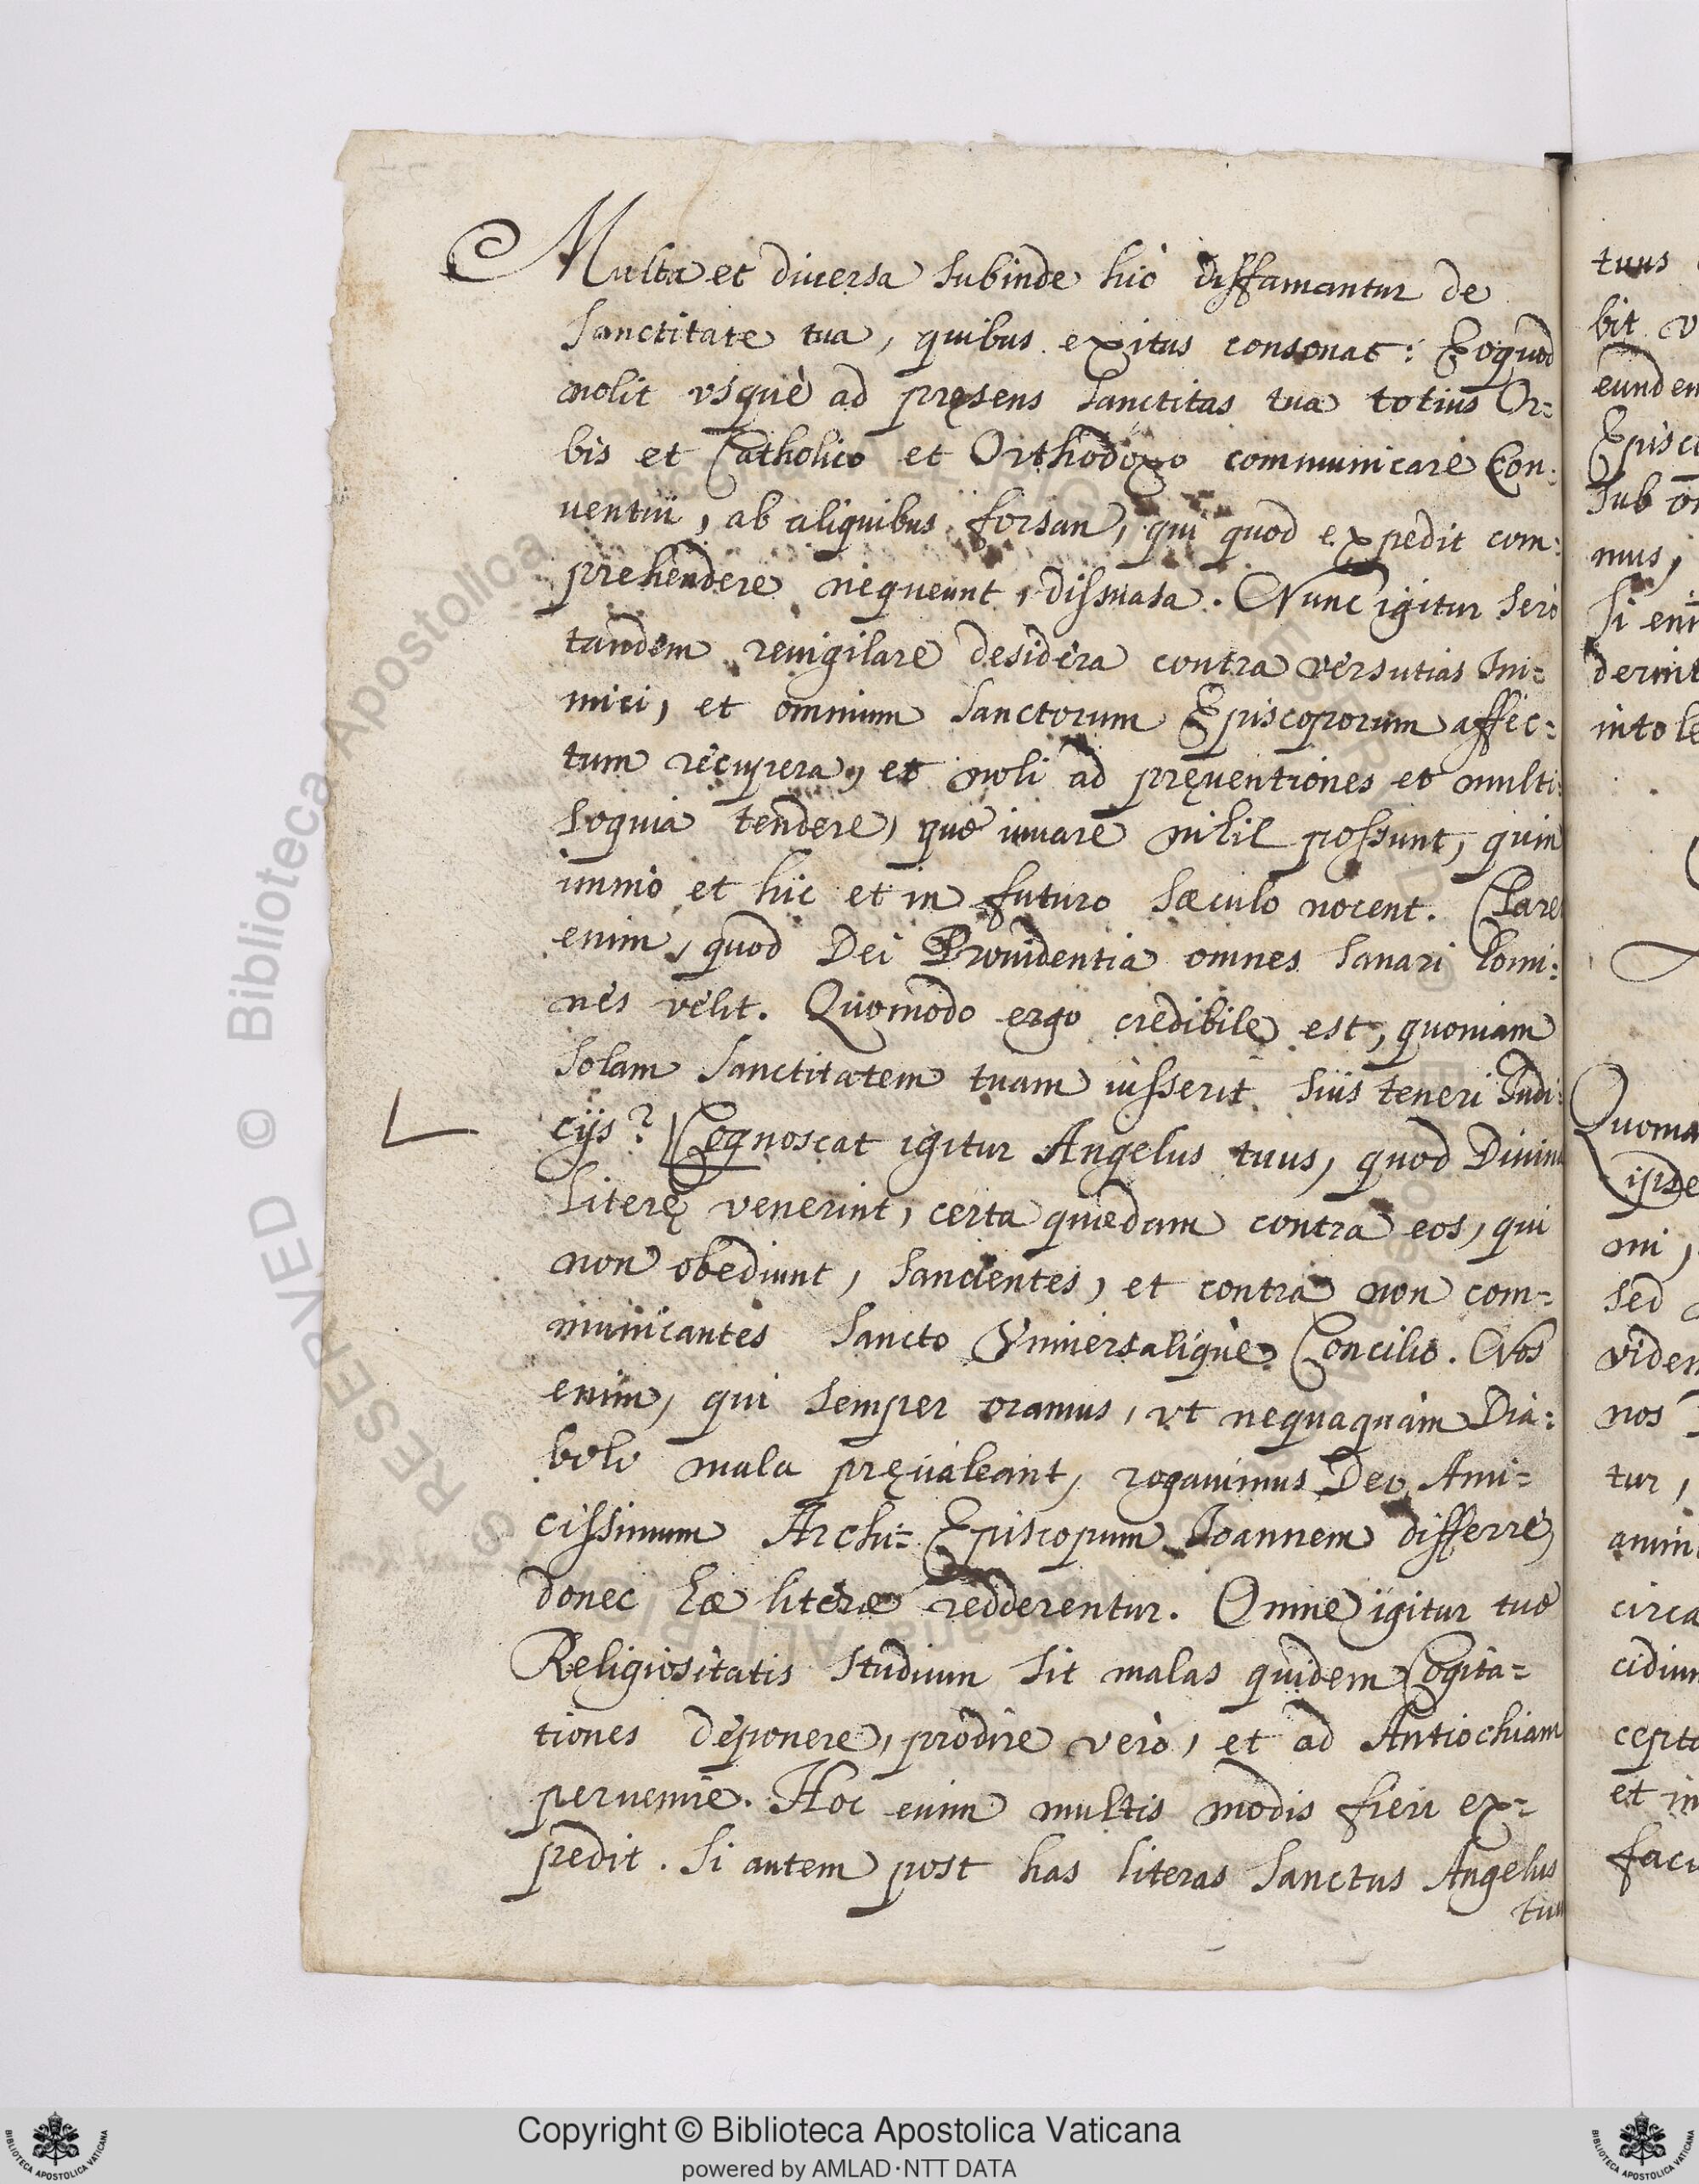 Multa et diuersa subinde hic diffamantur de
sanctitate tua, quibus exitus consonat: Eoquod
nolit vsque ad pręsens sanctitas tua totius Or=
bis et Catholico et Orthodoxo communicare Con:
uentui, ab aliquibus forsan, qui quod expedit com:
prehendere nequeunt, dissuasa. Nunc igitur serò
tandem reuigilare desidera contra versutias Ini=
mici, et omnium sanctorum Episcoporum affec=
tum recupera, et noli ad pręuentiones et multi:
loquia tendere, quę iuuare nihil possunt, quin
immò et hic et in futuro sæculo nocent. Claret
enim, quod Dei Prouidentia omnes sanari homi:
nes velit. Quomodo ergo credibile est, quoniam
solam sanctitatem tuam iusserit suis teneri Iudi:
cijs? Cognoscat igitur Angelus tuus, quod Diuinę
literę venerint, certa quædam contra eos, qui
non obediunt, sancientes, et contra non com=
municantes sancto Vniuersalique Concilio. Nos
enim, qui semper oramus, vt nequaquàm Dia:
boli mala pręualeant, rogauimus Deo Ami=
cissimum Archi=Episcopum Ioannem differre,
donec hæ literæ redderentur. Omne igitur tuę
Religiositatis studium sit malas quidem Cogita=
tiones deponere, prodire verò, et ad Antiochiam
peruenire. Hoc enim multis modis fieri ex=
pedit. Si autem post has literas sanctus Angelus
tuus
tuus
bit v
eundem
Episco
sub om
mus,
si eni
derint
intole
Quoma
ipse
mi,
sed
viden
nos
tur,
anim
circa
cidium
cepto
et in
faci
© Biblioteca Apostolica Vaticana
Copyright © Biblioteca Apostolica Vaticana
powered by AMLAD·NTT DATA
BIBLIOTECA APOSTOLICA VATICANA
BIBLIOTECA APOSTOLICA VATICANA